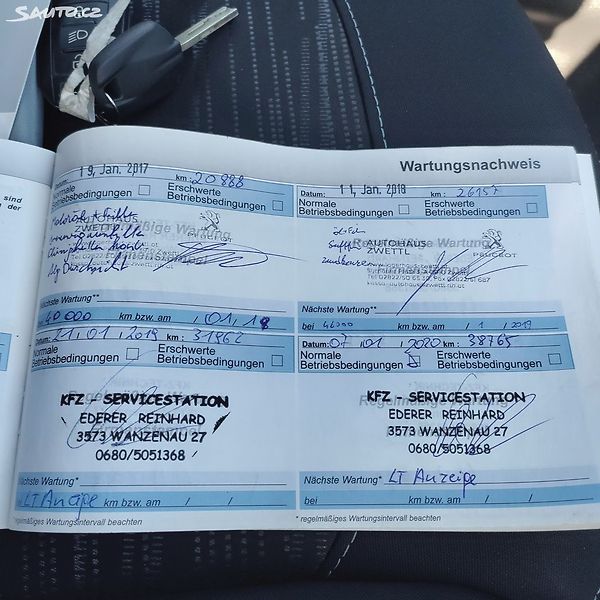 SAUTO.CZ
Wartungsnachweis
sind
der
19. Jan. 2017 km: 20 888
Normale Betriebsbedingungen
Erschwerte Betriebsbedingungen
AUTOHAUS
ZWETTL
PEUGEOT
Nächste Wartung**
40 000 km bzw. am / 01 / 18
Datum: 11. Jan. 2018 km: 26157
Normale Betriebsbedingungen
Erschwerte Betriebsbedingungen
AUTOHAUS
ZWETTL
PEUGEOT
Nächste Wartung*
bei 46000 km bzw. am / 1 / 2019
21 / 01 / 2019 km: 31962
Normale Betriebsbedingungen
Erschwerte Betriebsbedingungen
KFZ - SERVICESTATION
EDERER REINHARD
3573 WANZENAU 27
0680/5051368
Nächste Wartung*
LT Anzeige km bzw. am / /
* regelmäßiges Wartungsintervall beachten
Datum: 07 / 01 / 2020 km: 38765
Normale Betriebsbedingungen
Erschwerte Betriebsbedingungen
KFZ - SERVICESTATION
EDERER REINHARD
3573 WANZENAU 27
0680/5051368
Nächste Wartung* LT Anzeige
bei km bzw. am / /
* regelmäßiges Wartungsintervall beachten